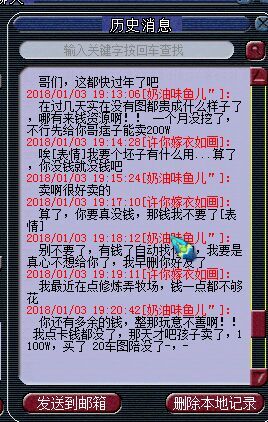 历史消息
输入关键字按回车查找
哥们，这都快过年了吧
2018/01/03 19:13:06[奶油味鱼儿”]:
在过几天实在没有图都贵成什么样子了
，哪有来钱资源啊！！ 一个月没挖了，
不行先给你哥痞子能卖200W
2018/01/03 19:14:28[许你嫁衣如画]:
唉[表情]我要个坯子有什么用...算了
，你没钱就没钱吧
2018/01/03 19:15:24[奶油味鱼儿”]:
卖啊很好卖的
2018/01/03 19:17:10[许你嫁衣如画]:
算了，你要真没钱，那钱我不要了[表
情]
2018/01/03 19:18:12[奶油味鱼儿”]:
别不要了，有钱了自动我 ，我要是
真心不想给你了，我早删你好友了
2018/01/03 19:19:11[许你嫁衣如画]:
我最近在点修炼弄牧场，钱一点都不够
花
2018/01/03 19:20:42[奶油味鱼儿”]:
你还有多余的钱，整那玩意不善啊！！
我点卡钱都没了，那天才吧孩子卖了，1
100W，买了 20车图陪没了-，-
发送到邮箱
删除本地记录